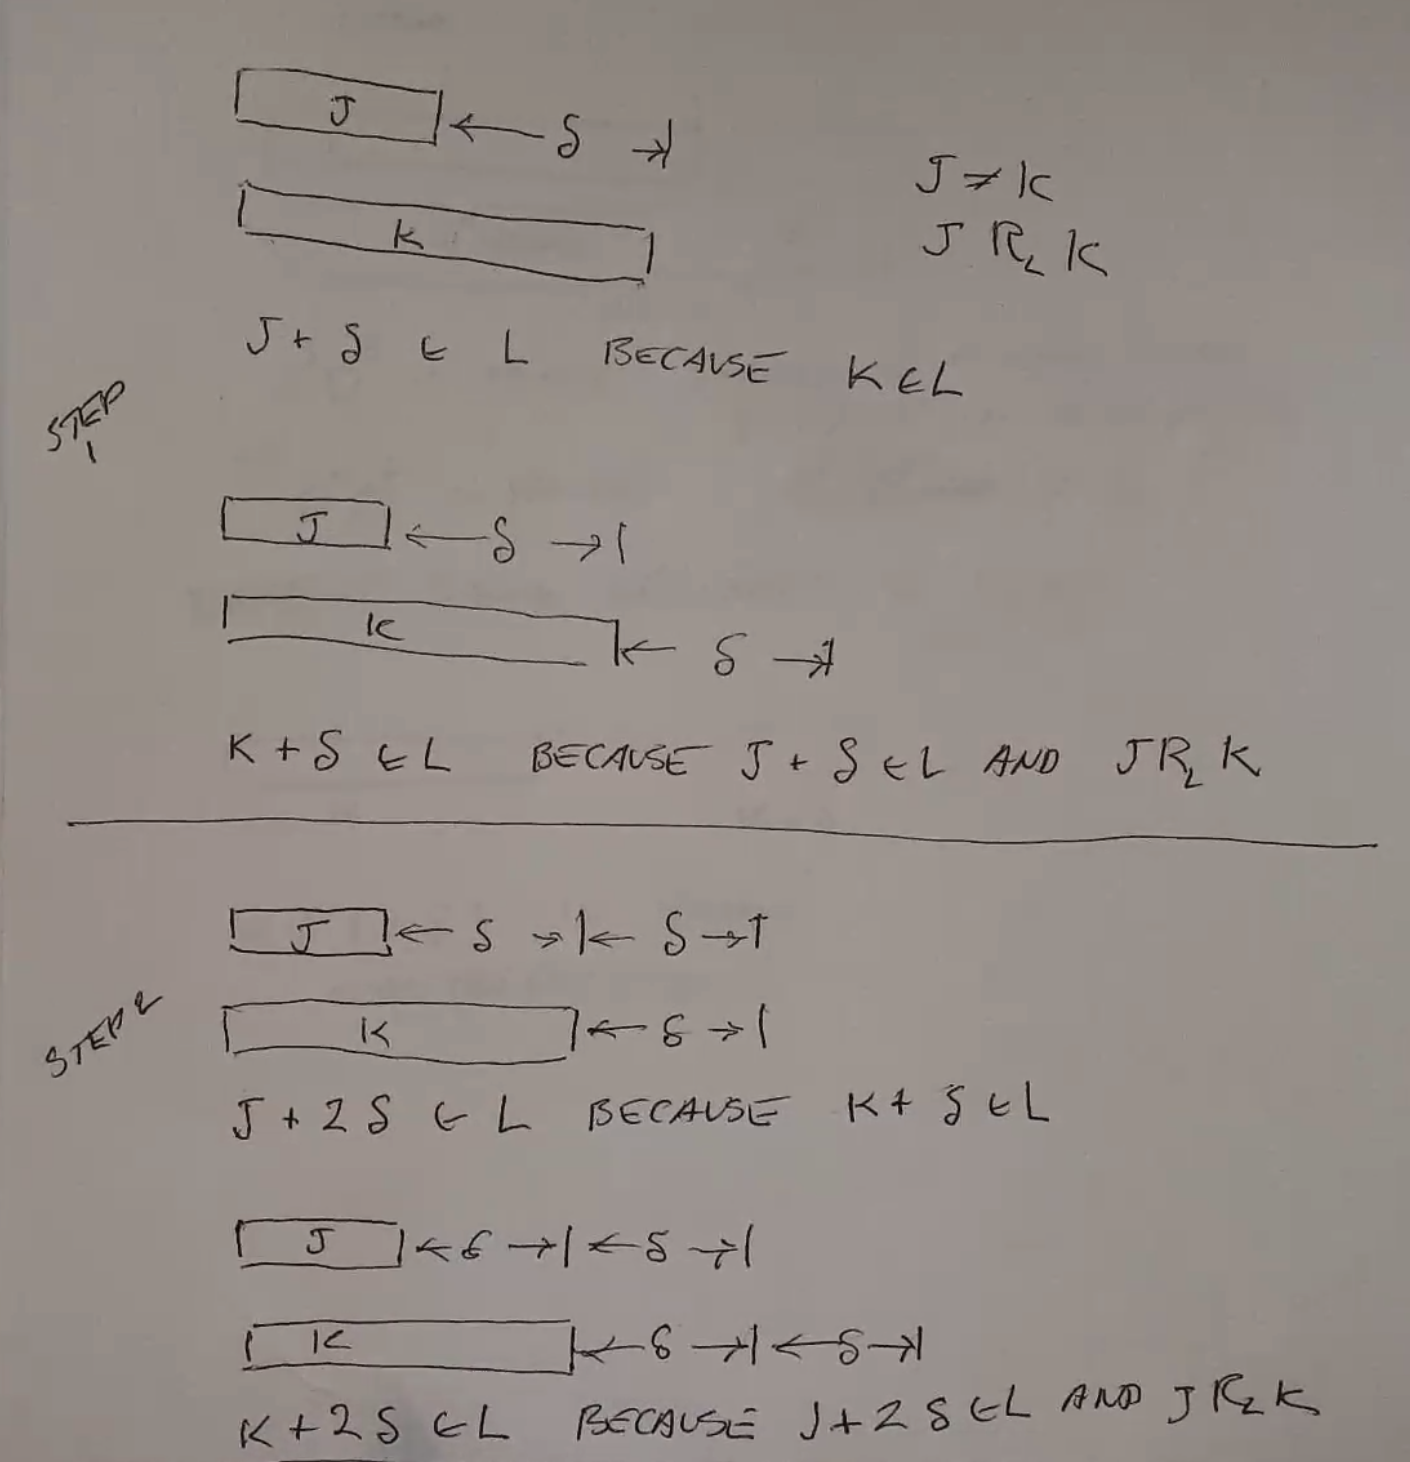 J ← δ →|
K
J ≠ K
J R_L K
J + δ ∈ L BECAUSE K ∈ L
STEP 1
J ← δ →|
K |← δ →|
K + δ ∈ L BECAUSE J + δ ∈ L AND J R_L K
J |← δ →|← δ →|
K |← δ →|
STEP 2
J + 2δ ∈ L BECAUSE K + δ ∈ L
J |← δ →|← δ →|
K |← δ →|← δ →|
K + 2δ ∈ L BECAUSE J + 2δ ∈ L AND J R_L K